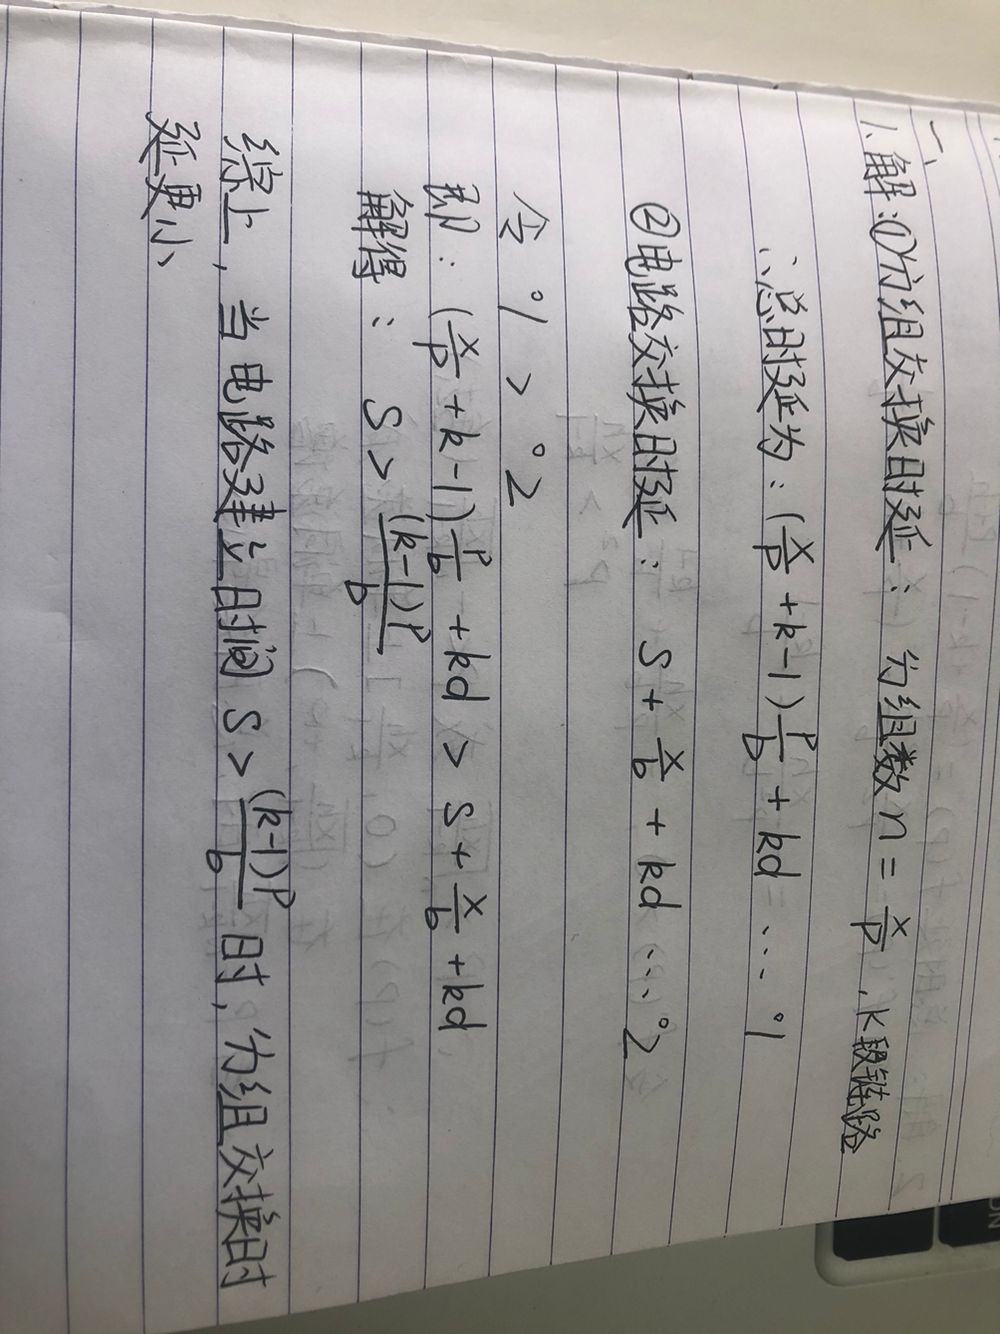 一、
1.解:①分组交换时延: 分组数 n = x/p , K段链路
∴总时延为: (x/p + k-1) p/b + kd … °1
②电路交换时延: s + x/b + kd … °2
令 °1 > °2
即: (x/p + k-1) p/b + kd > s + x/b + kd
解得: s > (k-1)p/b
综上, 当电路建立时间 s > (k-1)p/b 时, 分组交换时
延更小